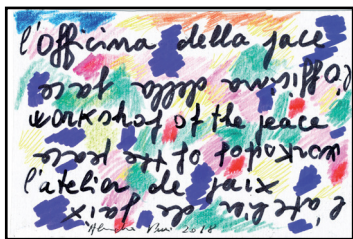 l'Officina della pace
l'Officina della pace
workshop of the peace
workshop of the peace
l'atelier de paix
l'atelier de paix
2018